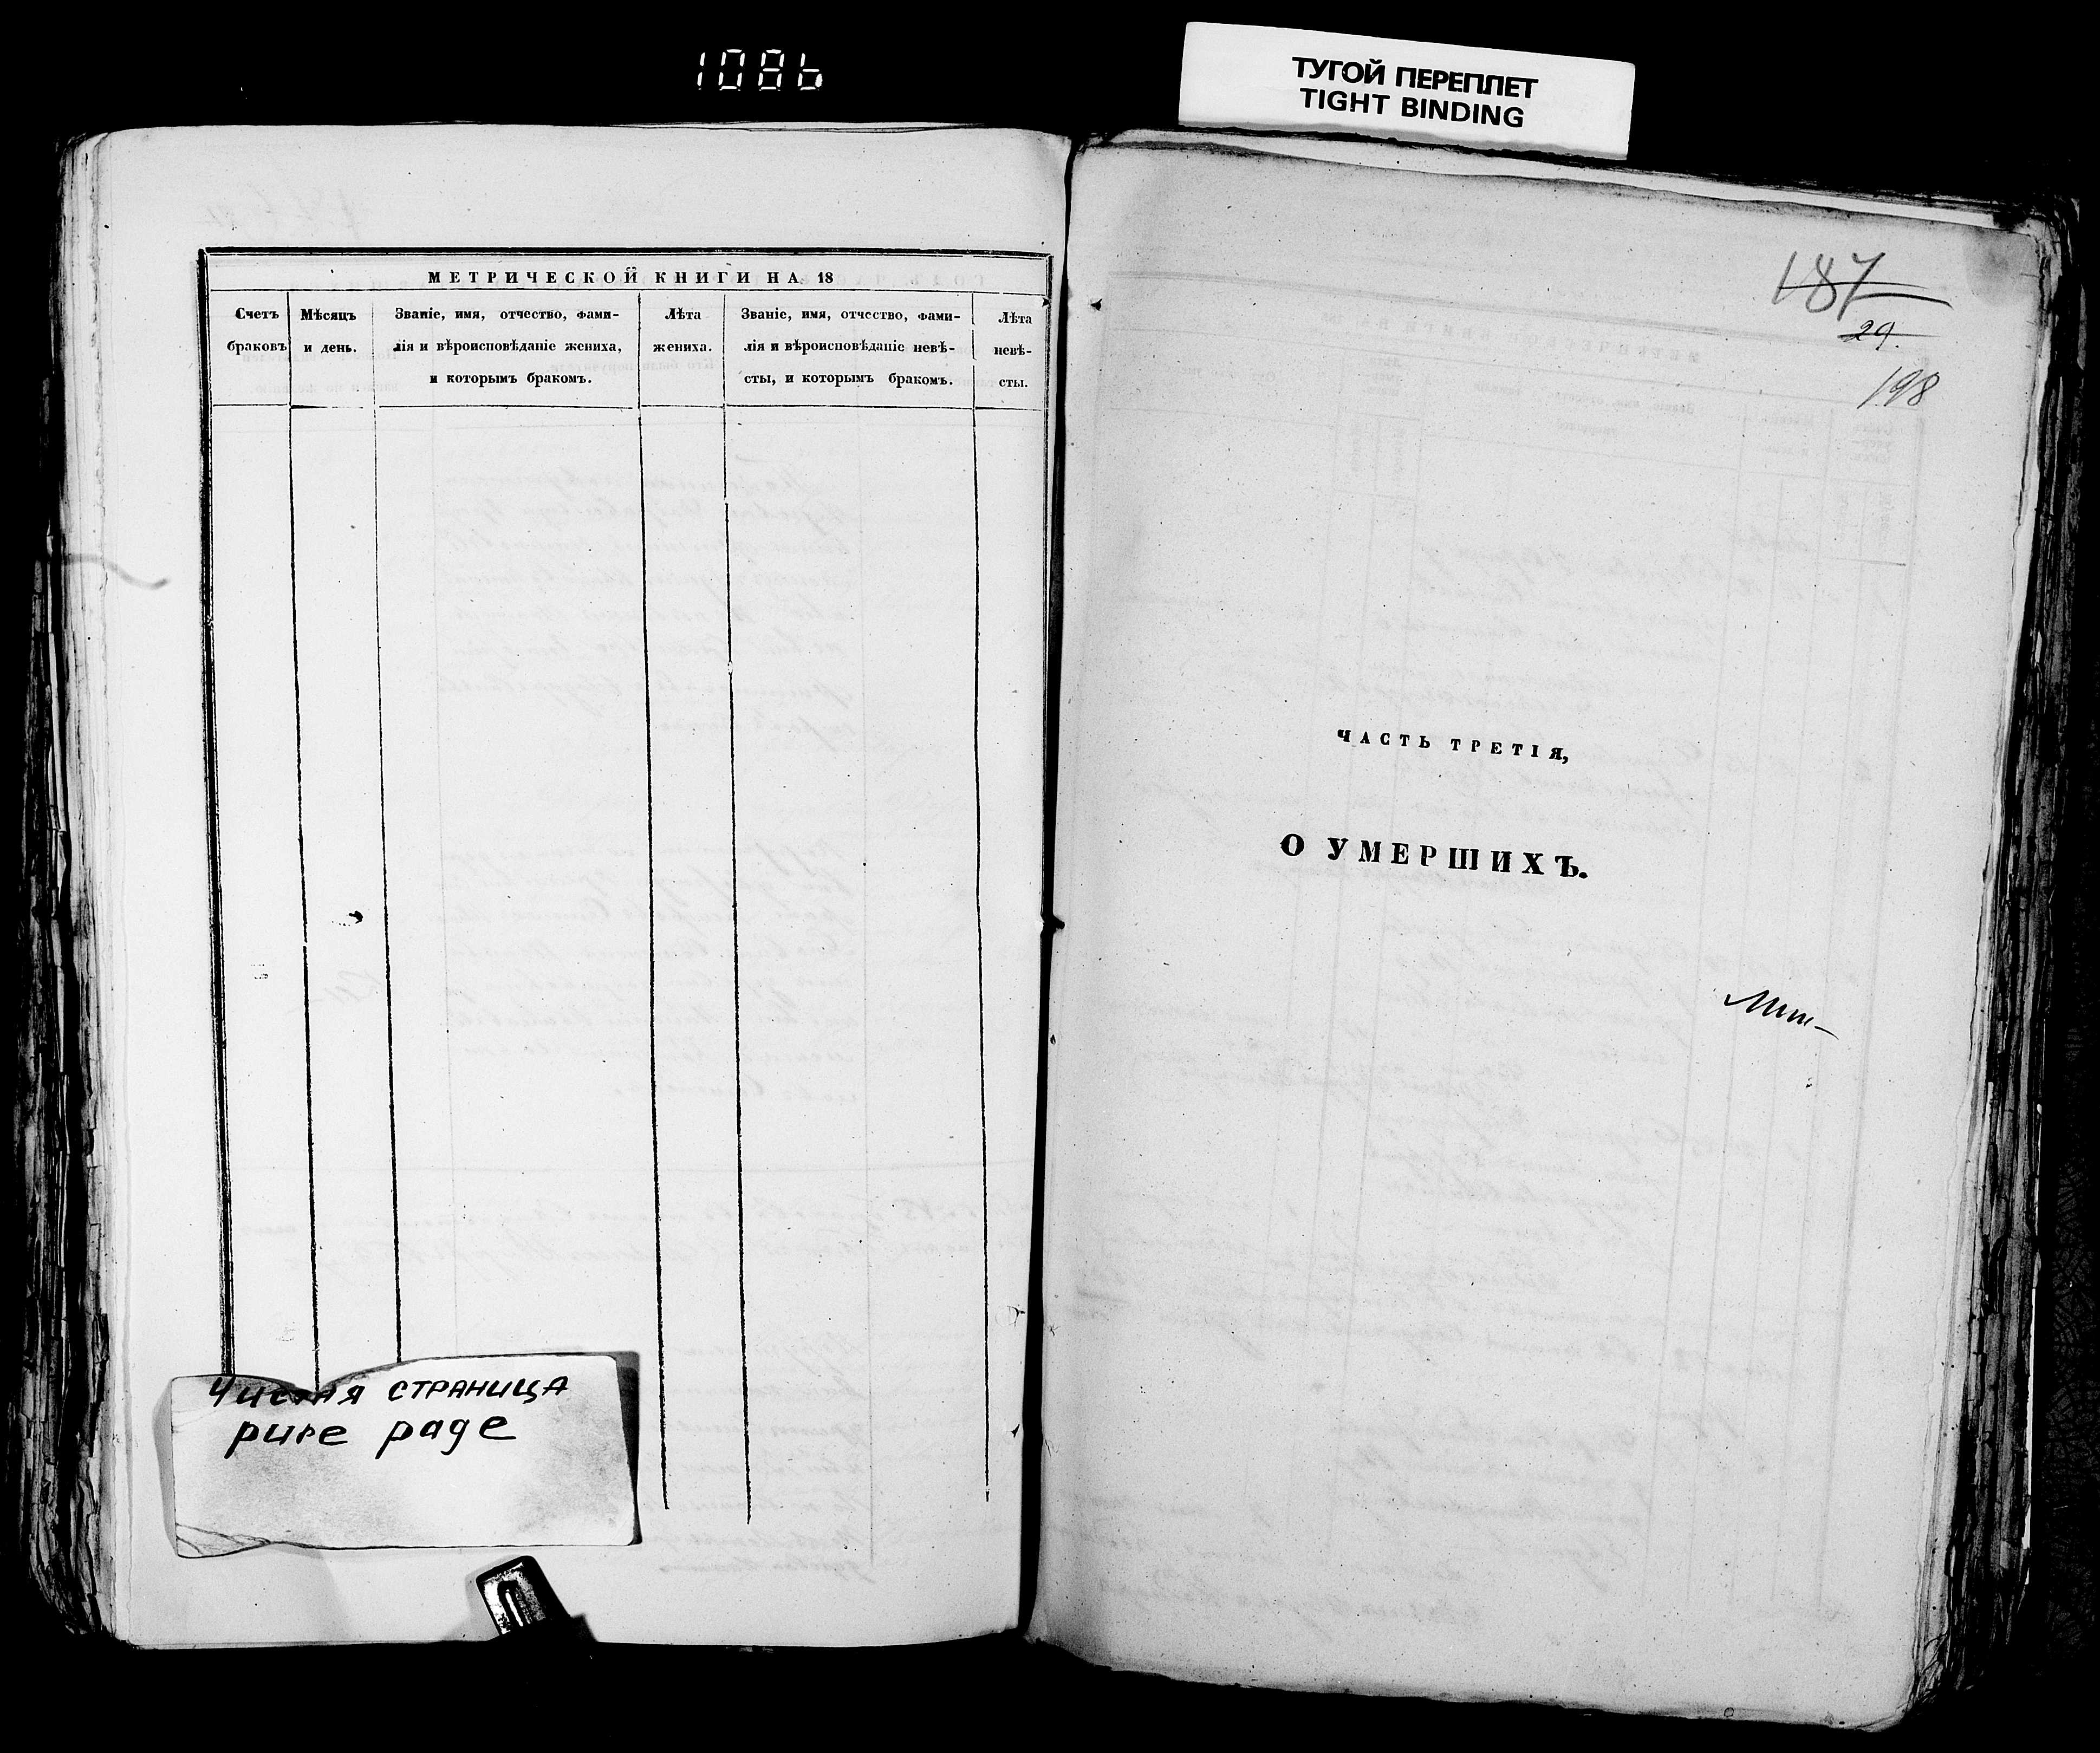 1086
ТУГОЙ ПЕРЕПЛЕТ
TIGHT BINDING
МЕТРИЧЕСКОЙ КНИГИ НА 18
Счетъ браковъ
Мѣсяцъ и день.
Званіе, имя, отчество, фами-
лія и вѣроисповѣданіе жениха,
и которымъ бракомъ.
Лѣта
жениха.
Званіе, имя, отчество, фами-
лія и вѣроисповѣданіе невѣ-
сты, и которымъ бракомъ.
Лѣта
невѣ-
сты.
Чистая СТРАНИЦА
pure page
187
29.
198
ЧАСТЬ ТРЕТІЯ,
О УМЕРШИХЪ.